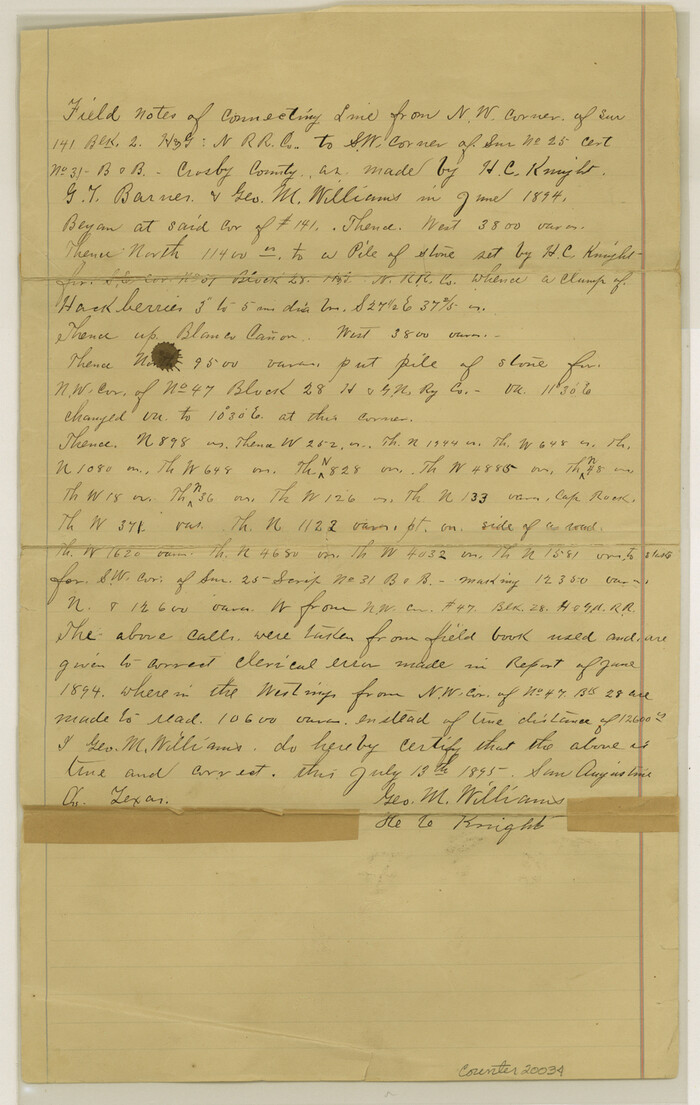 Field Notes of Connecting Line from N.W. Corner. of Sur
141 Blk. 2. H&G: N R R. Co. to S.W. Corner of Sur No 25 cert
No 31 - B & B. - Crosby County, as made by H.C. Knight.
G.T. Barnes & Geo. M. Williams in June 1894.
Began at said Cor of #141. Thence. West 3800 varas.
Thence North 11400 vs. to a Pile of stone set by H.C. Knight
for. S.E. Cor. No 51 Block 28. H&G. N. RR. Co. whence a clump of
Hackberries 3" to 5 ins dia brs. S 27½ E 37 2/5 vs.
Thence up Blanco Cañon. West 3800 varas. -
Thence 9500 varas. put pile of stone for.
N.W. Cor. of No 47 Block 28 H & G.N. Ry Co. - Va. 11°30'E
changed va. to 10°30'E. at this corner.
Thence. N 898 vs. Thence W 252. vs. Th. N 1944 vs. Th. W 648 vs. Th.
N 1080 vrs. Th W 648 vrs. Th N 828 vrs. Th W 4885 vrs. Th N 48 vrs
Th W 18 vrs. Th N 36 vrs. Th W 126 vs. Th. N 133 varas. Cap Rock.
Th W 371 vas. Th. N 1122 varas. pt. on side of a road.
Th. W 1620 varas. Th. N 4680 vrs. Th W 4032 vrs. Th N 1581 vrs. to stake
for. S.W. Cor. of Sur. 25 - Scrip No 31 B & B. - making 12350 varas.
N. & 12600 varas. W from N.W. cor. #47. Blk. 28. H & G.N. R.R.
The above calls. were taken from field book used and are
given to correct clerical error made in Report of June
1894. wherein the Westings from N.W. Cor. of No 47 Blk 28 are
made to read. 10600 varas. instead of true distance of 12600 vs
I Geo. M. Williams. do hereby certify that the above is
true and correct. this July 13th 1895. San Augustine
Co. Texas. Geo. M. Williams
H C Knight
Counter 20034